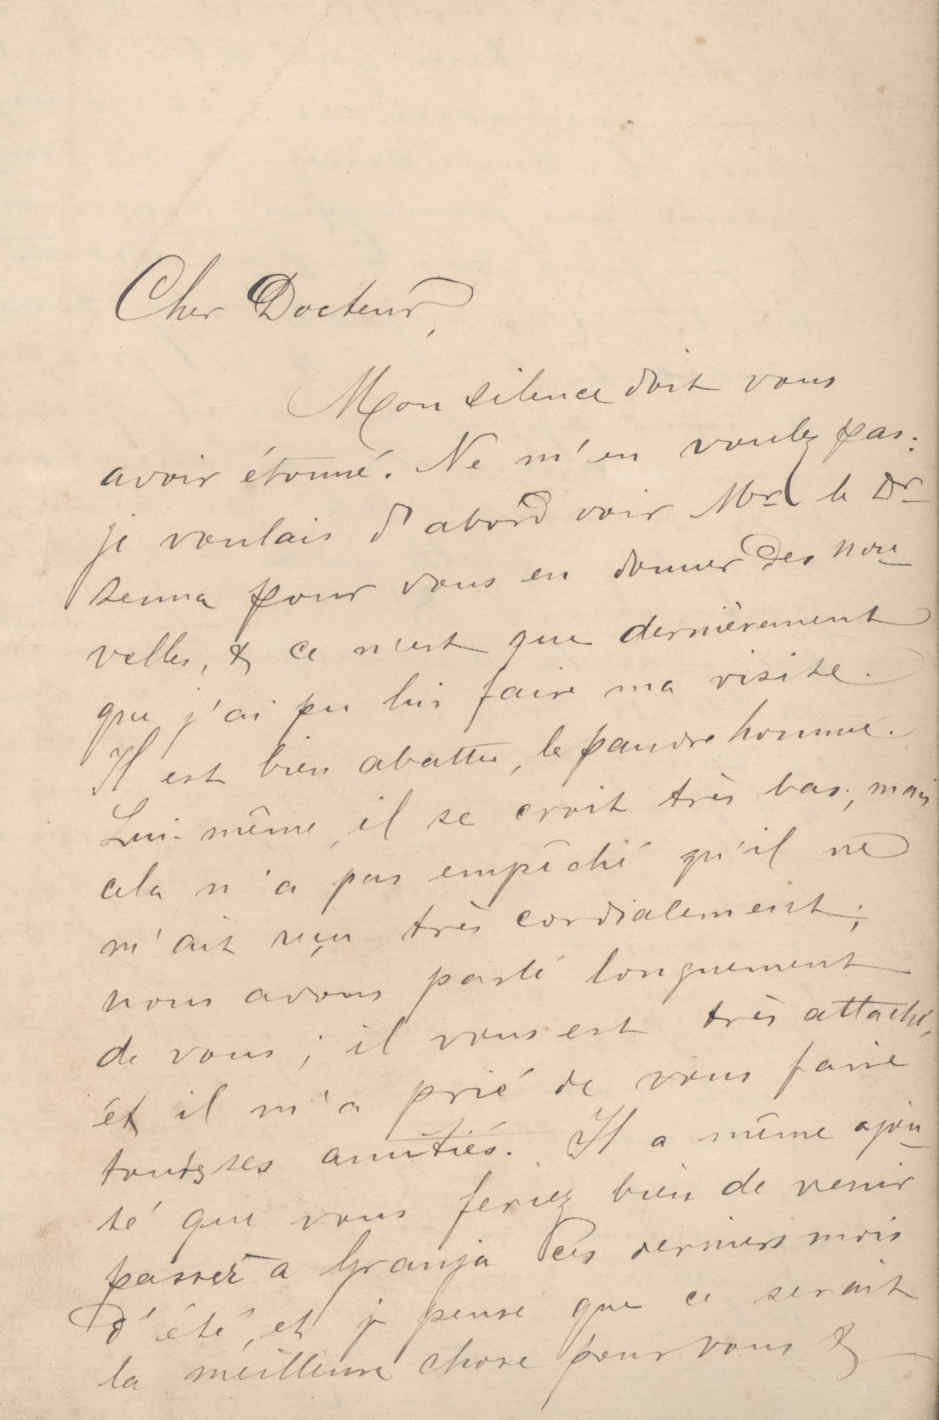 Cher Docteur,
Mon silence doit vous
avoir étonné. Ne m'en voulez pas.
je voulais d'abord voir Mr le Dr
Senna pour vous en donner des nou
velles, & ce n'est que dernièrement
que j'ai pu lui faire ma visite.
Il est bien abattu, le pauvre homme.
Lui-même, il se croit très bas, mais
cela n'a pas empêché qu'il ne
m'ait reçu très cordialement;
nous avons parlé longuement
de vous; il vous est très attaché,
et il m'a prié de vous faire
toutes ses amitiés. Il a même ajou
té que vous feriez bien de venir
passer à Granja ces derniers mois
d'été, et je pense que ce serait
la meilleure chose pour vous &